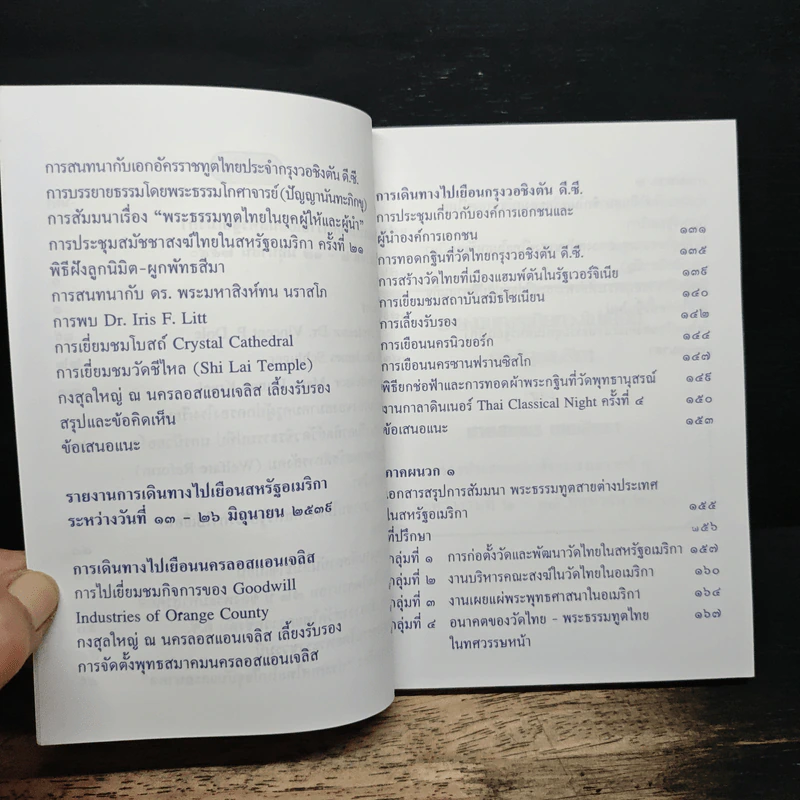 การสนทนากับเอกอัครราชทูตไทยประจำกรุงวอชิงตัน ดี.ซี.
การบรรยายธรรมโดยพระธรรมโกศาจารย์ (ปัญญานันทะภิกขุ)
การสัมมนาเรื่อง “พระธรรมทูตไทยในยุคผู้ให้และผู้นำ”
การประชุมสมัชชาสงฆ์ไทยในสหรัฐอเมริกา ครั้งที่ ๒๑
พิธีฝังลูกนิมิต-ผูกพัทธสีมา
การสนทนากับ ดร. พระมหาสิงห์ทน นราสโภ
การพบ Dr. Iris F. Litt
การเยี่ยมชมโบสถ์ Crystal Cathedral
การเยี่ยมชมวัดซีไหล (Shi Lai Temple)
กงสุลใหญ่ ณ นครลอสแอนเจลิส เลี้ยงรับรอง
สรุปและข้อคิดเห็น
ข้อเสนอแนะ
รายงานการเดินทางไปเยือนสหรัฐอเมริกา
ระหว่างวันที่ ๑๓ - ๒๖ มิถุนายน ๒๕๓๙
การเดินทางไปเยือนนครลอสแอนเจลิส
การไปเยี่ยมชมกิจการของ Goodwill
Industries of Orange County
กงสุลใหญ่ ณ นครลอสแอนเจลิส เลี้ยงรับรอง
การจัดตั้งพุทธสมาคมนครลอสแอนเจลิส
การเดินทางไปเยือนกรุงวอชิงตัน ดี.ซี.
การประชุมเกี่ยวกับองค์การเอกชนและ
ผู้นำองค์การเอกชน ๑๓๑
การทอดกฐินที่วัดไทยกรุงวอชิงตัน ดี.ซี. ๑๓๕
การสร้างวัดไทยที่เมืองแฮมพ์ตันในรัฐเวอร์จิเนีย ๑๓๙
การเยี่ยมชมสถาบันสมิธโซเนียน ๑๔๐
การเลี้ยงรับรอง ๑๔๒
การเยือนนครนิวยอร์ก ๑๔๔
การเยือนนครซานฟรานซิสโก ๑๔๗
พิธียกช่อฟ้าและการทอดผ้าพระกฐินที่วัดพุทธานุสรณ์ ๑๔๙
งานกาลาดินเนอร์ Thai Classical Night ครั้งที่ ๔ ๑๕๐
ข้อเสนอแนะ ๑๕๓
ภาคผนวก ๑
เอกสารสรุปการสัมมนา พระธรรมทูตสายต่างประเทศ
ในสหรัฐอเมริกา ๑๕๕
ที่ปรึกษา ๑๕๖
กลุ่มที่ ๑ การก่อตั้งวัดและพัฒนาวัดไทยในสหรัฐอเมริกา ๑๕๗
กลุ่มที่ ๒ งานบริหารคณะสงฆ์ในวัดไทยในอเมริกา ๑๖๐
กลุ่มที่ ๓ งานเผยแผ่พระพุทธศาสนาในอเมริกา ๑๖๔
กลุ่มที่ ๔ อนาคตของวัดไทย - พระธรรมทูตไทย ๑๖๗
ในทศวรรษหน้า